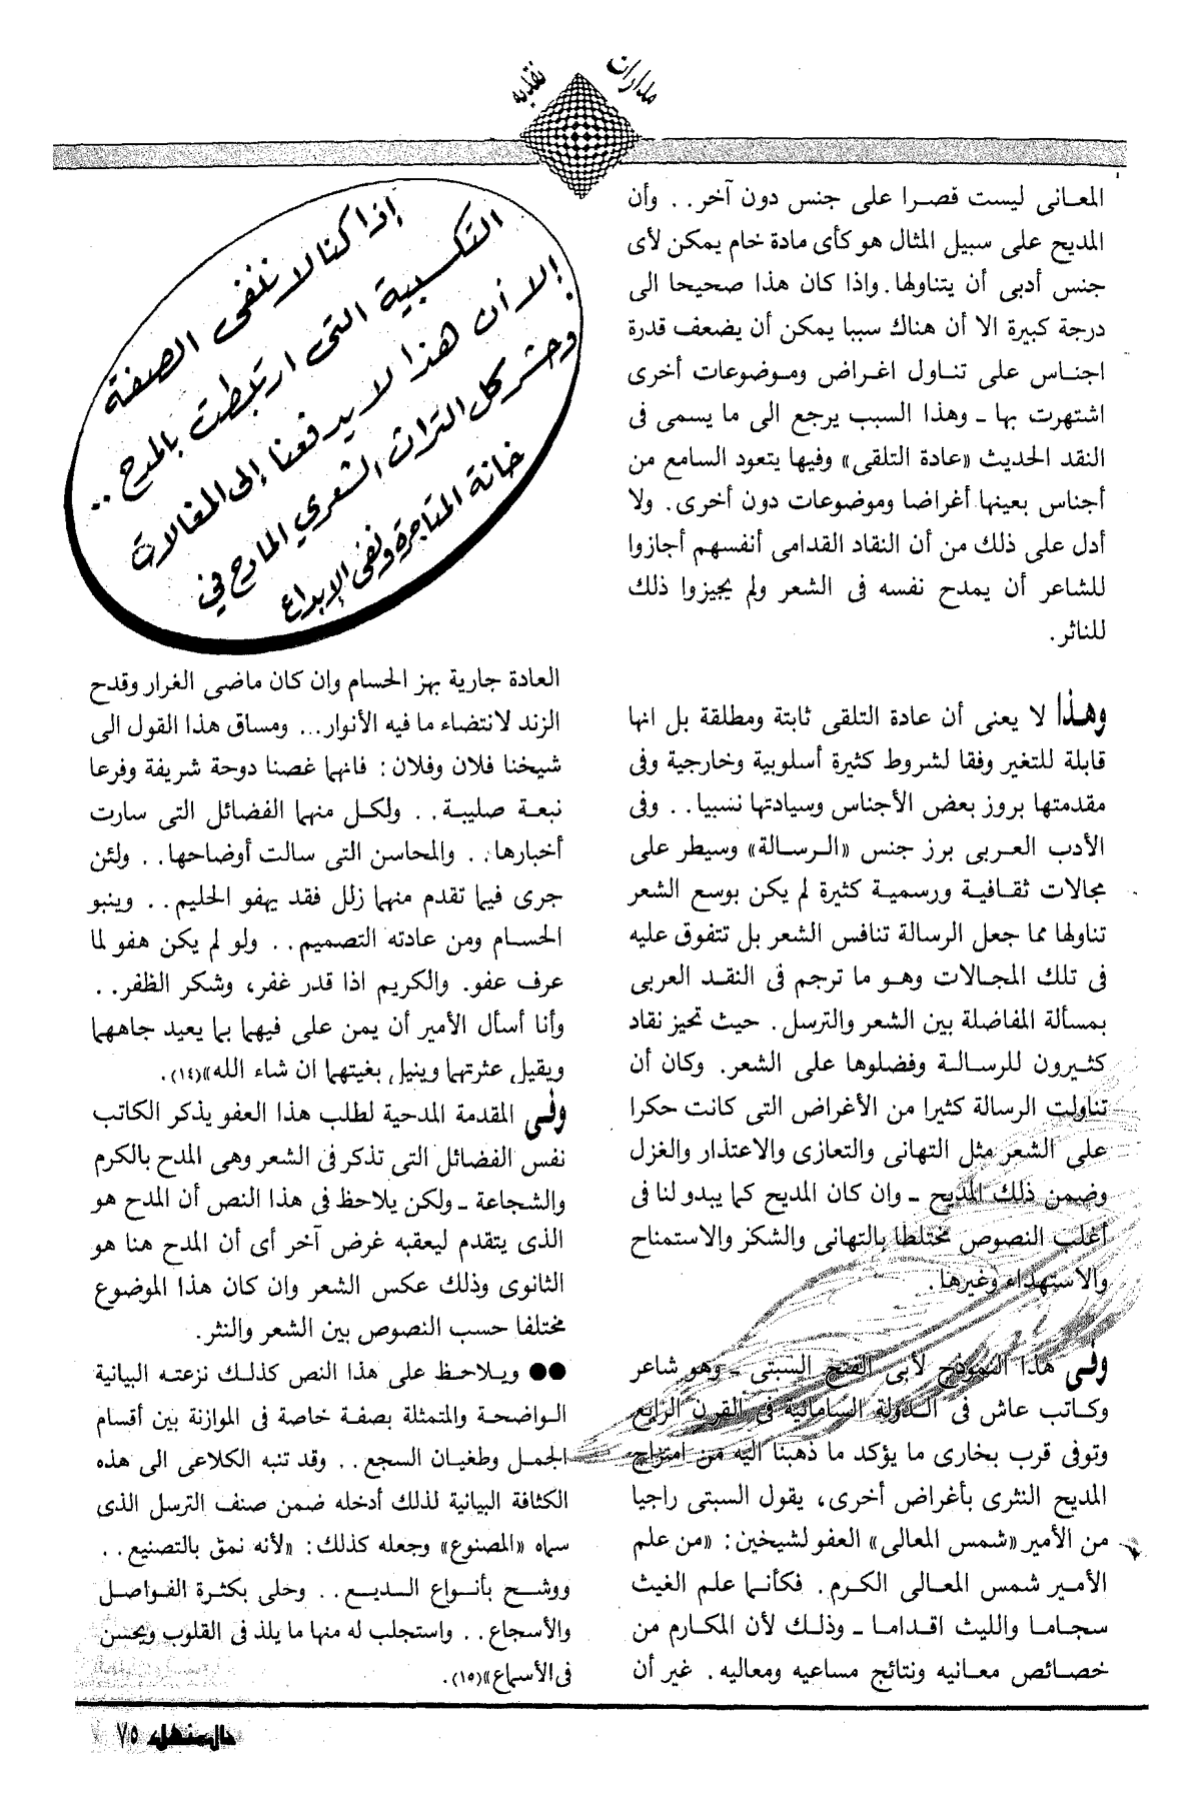 مدارات نقدية
المعانى ليست قصرا على جنس دون آخر. . وأن
المديح على سبيل المثال هو كأى مادة خام يمكن لأى
جنس أدبى أن يتناولها. واذا كان هذا صحيحا الى
درجة كبيرة الا أن هناك سببا يمكن أن يضعف قدرة
اجناس على تناول اغراض وموضوعات أخرى
اشتهرت بها ـ وهذا السبب يرجع الى ما يسمى فى
النقد الحديث «عادة التلقى» وفيها يتعود السامع من
أجناس بعينها أغراضا وموضوعات دون أخرى. ولا
أدل على ذلك من أن النقاد القدامى أنفسهم أجازوا
للشاعر أن يمدح نفسه فى الشعر ولم يجيزوا ذلك
للناثر.
وهذا لا يعنى أن عادة التلقى ثابتة ومطلقة بل انها
قابلة للتغير وفقا لشروط كثيرة أسلوبية وخارجية وفى
مقدمتها بروز بعض الأجناس وسيادتها نسبيا. . وفى
الأدب العربى برز جنس «الرسالة» وسيطر على
مجالات ثقافية ورسمية كثيرة لم يكن بوسع الشعر
تناولها مما جعل الرسالة تنافس الشعر بل تتفوق عليه
فى تلك المجالات وهو ما ترجم فى النقد العربى
بمسألة المفاضلة بين الشعر والترسل. حيث تحيز نقاد
كثيرون للرسالة وفضلوها على الشعر. وكان أن
تناولت الرسالة كثيرا من الأغراض التى كانت حكرا
على الشعر مثل التهانى والتعازى والاعتذار والغزل
وضمن ذلك المديح ـ وان كان المديح كما يبدو لنا فى
أغلب النصوص مختلطا بالتهانى والشكر والاستمناح
والاستهداء وغيرها.
وفى هذا النموذج لأبى الفتح السبتى ـ وهو شاعر
وكاتب عاش فى الدولة السامانية فى القرن الرابع
وتوفى قرب بخارى ما يؤكد ما ذهبنا اليه من امتزاج
المديح النثرى بأغراض أخرى، يقول السبتى راجيا
من الأمير «شمس المعالى» العفو لشيخين: «من علم
الأمير شمس المعالى الكرم. فكأنما علم الغيث
سجاما والليث اقداما ـ وذلك لأن المكارم من
خصائص معانيه ونتائج مساعيه ومعاليه. غير أن
إذا كنا لا ننفى الصفة
التكسبية التى ارتبطت بالمدح ..
إلا أن هذا لا يدفعنا إلى المغالات
وحشر كل التراث الشعري المادح في
خانة المتاجرة ونفى الإبداع
العادة جارية بهز الحسام وان كان ماضى الغرار وقدح
الزند لانتضاء ما فيه الأنوار... ومساق هذا القول الى
شيخنا فلان وفلان: فانهما غصنا دوحة شريفة وفرعا
نبعة صليبة. . ولكل منهما الفضائل التى سارت
أخبارها. . والمحاسن التى سالت أوضاحها. . ولئن
جرى فيما تقدم منهما زلل فقد يهفو الحليم. . وينبو
الحسام ومن عادته التصميم. . ولو لم يكن هفو لما
عرف عفو. والكريم اذا قدر غفر، وشكر الظفر. .
وأنا أسأل الأمير أن يمن على فيهما بما يعيد جاههما
ويقيل عثرتهما وينيل بغيتهما ان شاء الله»(١٤).
وفى المقدمة المدحية لطلب هذا العفو يذكر الكاتب
نفس الفضائل التى تذكر فى الشعر وهى المدح بالكرم
والشجاعة ـ ولكن يلاحظ فى هذا النص أن المدح هو
الذى يتقدم ليعقبه غرض آخر أى أن المدح هنا هو
الثانوى وذلك عكس الشعر وان كان هذا الموضوع
مختلفا حسب النصوص بين الشعر والنثر.
●● ويلاحظ على هذا النص كذلك نزعته البيانية
الواضحة والمتمثلة بصفة خاصة فى الموازنة بين أقسام
الجمل وطغيان السجع. . وقد تنبه الكلاعى الى هذه
الكثافة البيانية لذلك أدخله ضمن صنف الترسل الذى
سماه «المصنوع» وجعله كذلك: «لأنه نمق بالتصنيع. .
ووشح بأنواع البديع. . وحلى بكثرة الفواصل
والأسجاع. . واستجلب له منها ما يلذ فى القلوب ويحسن
فى الأسماع»(١٥).
٧٥